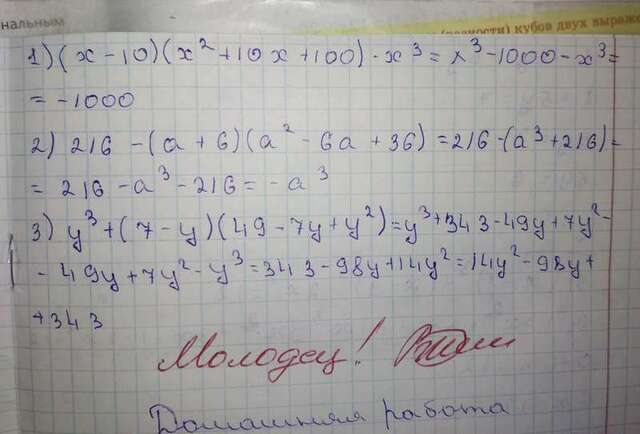 нальным
(разности) кубов двух выраже
1) (x - 10)(x² + 10x + 100) · x³ = x³ - 1000 - x³ =
= -1000
2) 216 - (a + 6)(a² - 6a + 36) = 216 - (a³ + 216) =
= 216 - a³ - 216 = - a³
3) y³ + (7 - y)(49 - 7y + y²) = y³ + 343 - 49y + 7y² -
- 49y + 7y² - y³ = 343 - 98y + 14y² = 14y² - 98y +
+ 343
Молодец!
Домашняя работа